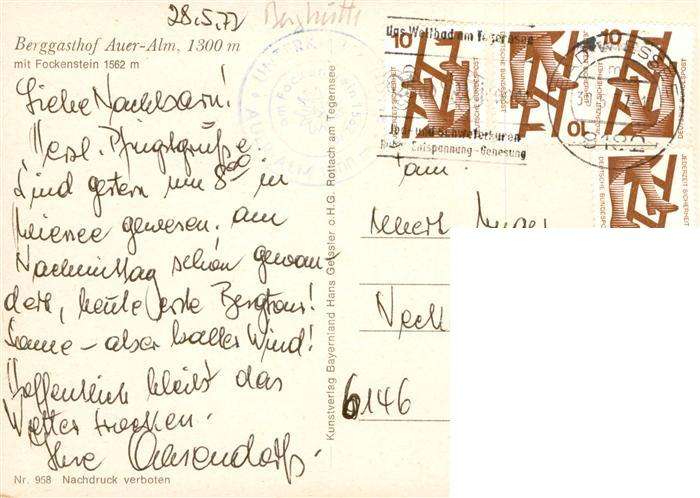 28.5.72 Berghütte
Berggasthof Auer-Alm, 1300 m
mit Fockenstein 1562 m
Liebe Nachbarn!
Herzl. Pfingstgrüße
Sind gestern um 8 00 in
gewesen. am
Nachmittag schön gewan-
dert, heute erste Bergtour!
Sonne – aber kalter Wind!
Hoffentlich bleibt das
Wetter trocken.
Ihre
Nr. 958 Nachdruck verboten
Kunstverlag Bayernland Hans Geissler o.H.G. Rottach am Tegernsee
das Weltbad am Tegernsee
Jod- und Schwefelkuren
Entspannung - Genesung
10
10
10
DEUTSCHE BUNDESPOST
JEDERZEIT SICHERHEIT
am Fockenstein
an
Neck
6146